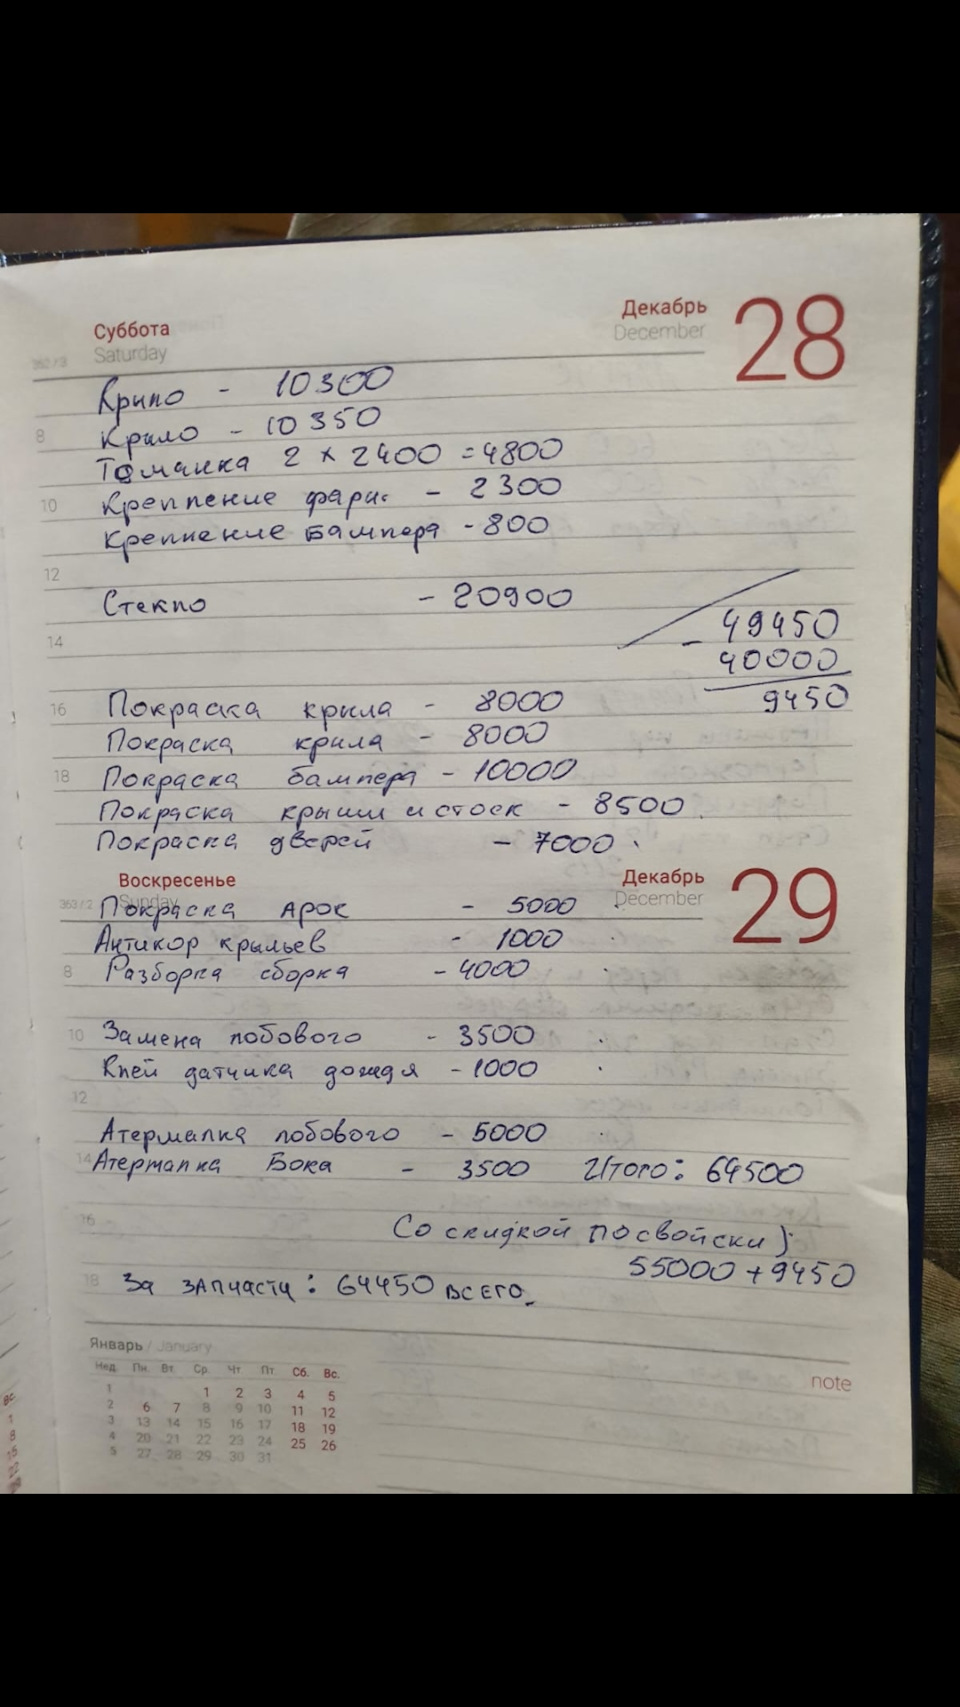 Суббота
Saturday
Декабрь
December
28
Крыло - 10300
8
Крыло - 10350
Томанка 2 x 2400 = 4800
10
Крепление фары - 2300
Крепление бампера - 800
12
Стекло - 20900
14
- 49450
40000
9450
16
Покраска крыла - 8000
Покраска крыла - 8000
18
Покраска бампера - 10000
Покраска крыши и стоек - 8500
Покраска дверей - 7000
Воскресенье
Sunday
363 / 2
Декабрь
December
29
Покраска арок - 5000
Антикор крыльев - 1000
8
Разборка сборка - 4000
10
Замена лобового - 3500
Клей датчика дождя - 1000
12
Атермалка лобового - 5000
14
Атермалка Бока - 3500 Итого: 64500
16
Со скидкой по свойски )
55000 + 9450
18
За запчасти: 64450 всего.
Январь / January
Нед. Пн. Вт. Ср. Чт. Пт. Сб. Вс.
1 1 2 3 4 5
2 6 7 8 9 10 11 12
3 13 14 15 16 17 18 19
4 20 21 22 23 24 25 26
5 27 28 29 30 31
note